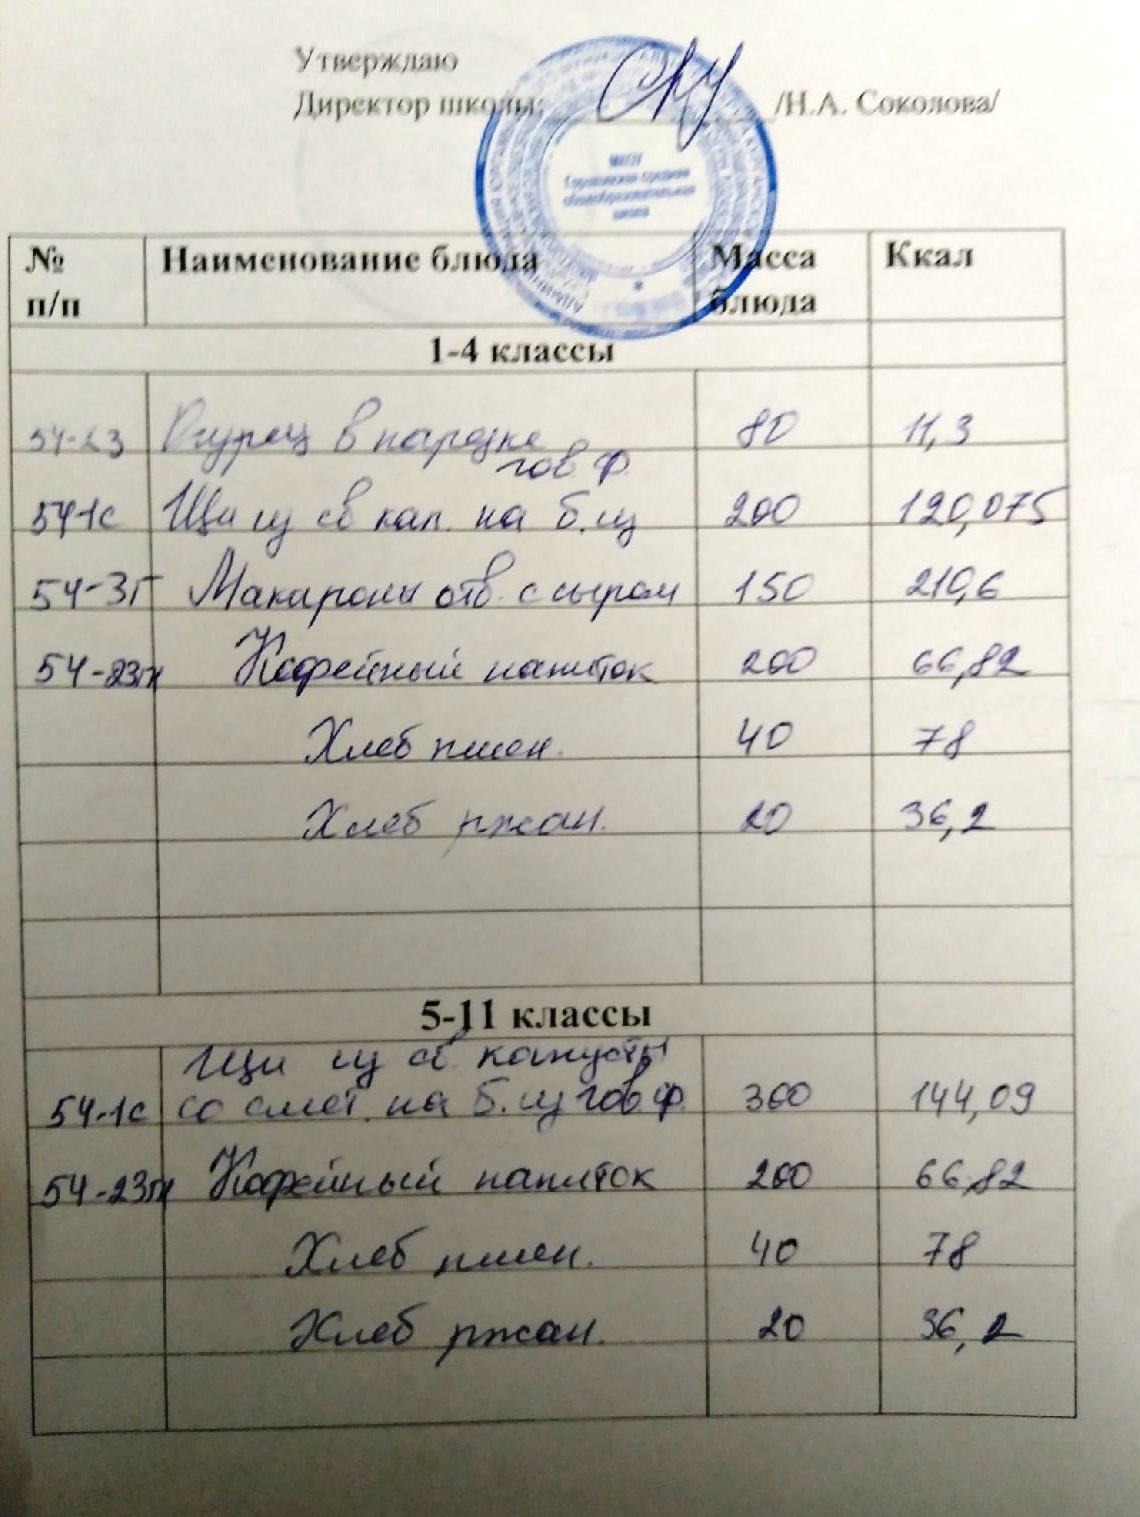 Утверждаю
Директор школы: /Н.А. Соколова/
МКОУ
средняя
общеобразовательная
школа
№ п/п Наименование блюда Масса блюда Ккал
1-4 классы
54-23 Огурец в нарезке 80 11,3
гов ф.
54-1с Щи из св кап. на б.из 200 120,075
54-3г Макароны отв. с сыром 150 210,6
54-23гн Кофейный напиток 200 66,82
Хлеб пшен. 40 78
Хлеб ржан. 20 36,2
5-11 классы
Щи из св. капусты
54-1с со смет. на б.из гов ф. 300 144,09
54-23гн Кофейный напиток 200 66,82
Хлеб пшен. 40 78
Хлеб ржан. 20 36,2